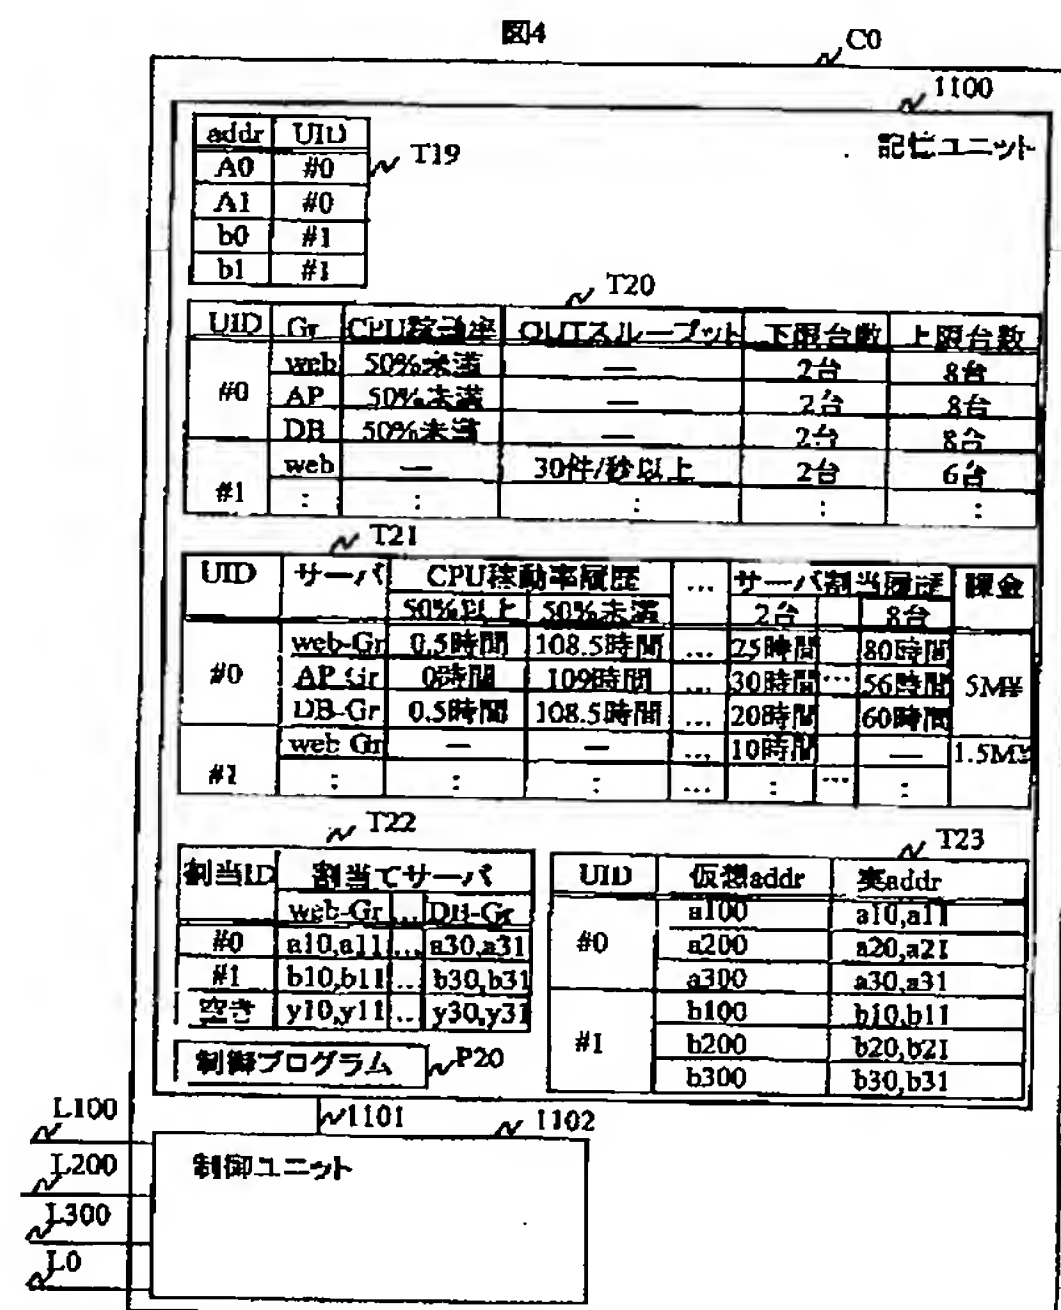 図4
C0
1100
記憶ユニット
addr UID
T19
A0 #0
A1 #0
b0 #1
b1 #1
T20
UID Gr CPU稼動率 OUTスループット 下限台数 上限台数
#0
web 50%未満 — 2台 8台
AP 50%未満 — 2台 8台
DB 50%未満 — 2台 8台
#1
web — 30件/秒以上 2台 6台
: : : : :
T21
UID サーバ CPU稼動率履歴 … サーバ割当履歴 課金
50%以上 50%未満 2台 8台
#0
web-Gr 0.5時間 108.5時間 … 25時間 80時間
AP Gr 0時間 109時間 … 30時間 … 56時間 5M¥
DB-Gr 0.5時間 108.5時間 … 20時間 60時間
#1
web Gr — — … 10時間 — 1.5M¥
: : : … : … :
T22
割当ID 割当てサーバ
web-Gr … DB-Gr
#0 a10,a11 … a30,a31
#1 b10,b11 … b30,b31
空き y10,y11 … y30,y31
制御プログラム
P20
T23
UID 仮想addr 実addr
#0
a100 a10,a11
a200 a20,a21
a300 a30,a31
#1
b100 b10,b11
b200 b20,b21
b300 b30,b31
1101
1102
制御ユニット
L100
L200
L300
L0